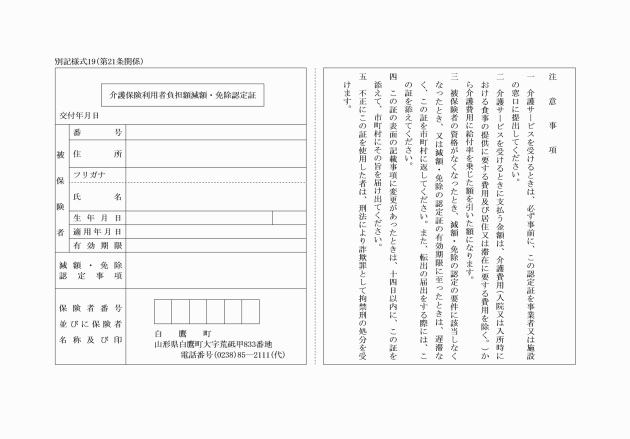 別記様式19(第21条関係)
介護保険利用者負担額減額・免除認定証
交付年月日
被保険者
番　　　号
住　　　所
フリガナ
氏　　　名
生年月日
適用年月日
有効期限
減額・免除
認定事項
保険者番号
並びに保険者
名称及び印
白　鷹　町
山形県白鷹町大字荒砥甲833番地
電話番号(0238)85―2111(代)
注　意　事　項
一　介護サービスを受けるときは、必ず事前に、この認定証を事業者又は施設
の窓口に提出してください。
二　介護サービスを受けるときに支払う金額は、介護費用(入院又は入所時に
おける食事の提供に要する費用及び居住又は滞在に要する費用を除く。)か
ら介護費用に給付率を乗じた額を引いた額になります。
三　被保険者の資格がなくなったとき、減額・免除の認定の要件に該当しなく
なったとき、又は減額・免除の認定証の有効期限に至ったときは、遅滞な
く、この証を市町村に返してください。また、転出の届出をする際には、こ
の証を添えてください。
四　この証の表面の記載事項に変更があったときは、十四日以内に、この証を
添えて、市町村にその旨を届け出てください。
五　不正にこの証を使用した者は、刑法により詐欺罪として拘禁刑の処分を受
けます。